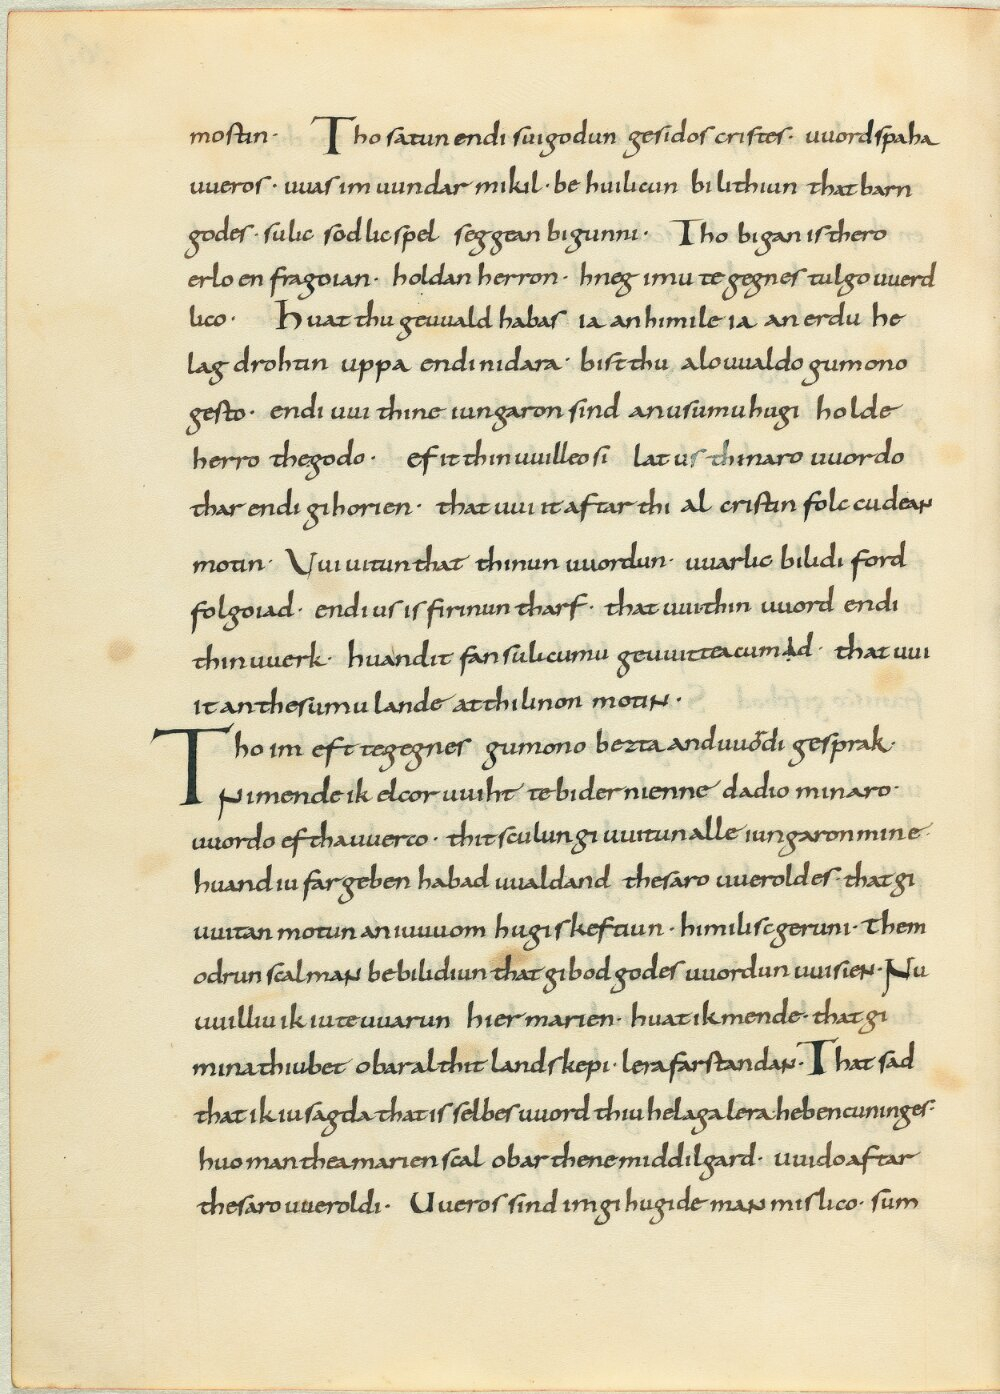 mostin· Tho satun endi suigodun gesidos cristes· uuordspaha
uueros· uuas im uundar mikil· be huilicun bilithiun that barn
godes· sulic sodlic spel seggean bigunni· Tho bigan is thero
erlo en fragoian· holdan herron· hneg imu te gegnes tulgo uuerd
lico· Huat thu geuuald habas ia an himile ia an erdu he
lag drohtin uppa endi nidara· bist thu alouualdo gumono
gesto· endi uui thine iungaron sind an usumu hugi holde
herro the godo· ef it thin uuilleo si lat us thinaro uuordo
thar endi gihorien· that uui it aftar thi al cristin folc cudean
motin· Vui uitun that thinun uuordun· uuarlic bilidi ford
folgoiad· endi us is firinun tharf· that uui thin uuord endi
thin uuerk· huand it fan sulicumu geuuittea cumid· that uui
it an thesumu lande at thi linon motin·
Tho im eft tegegnes gumono bezta anduuordi gesprak·
Ni mende ik elcor uuiht te bidernienne dadio minaro·
uuordo eftha uuerco· thit sculun gi uuitun alle iungaron mine·
huand iu fargeben habad uualdand thesaro uueroldes· that gi
uuitan motun an iuuuom hugiskeftiun· himilisc geruni· Them
odrun scal man be bilidiun that gibod godes uuordun uuisien· Nu
uuilliu ik iu te uuarun hier marien· huat ik mende· that gi
mina thiu bet obar al thit landskepi· lera farstandan· That sad
that ik iu sagda that is selbes uuord thiu helaga lera hebencuninges·
huo man thea marien scal obar thene middilgard· uuido aftar
thesaro uueroldi· Uueros sind im gihugide man mislico· sum